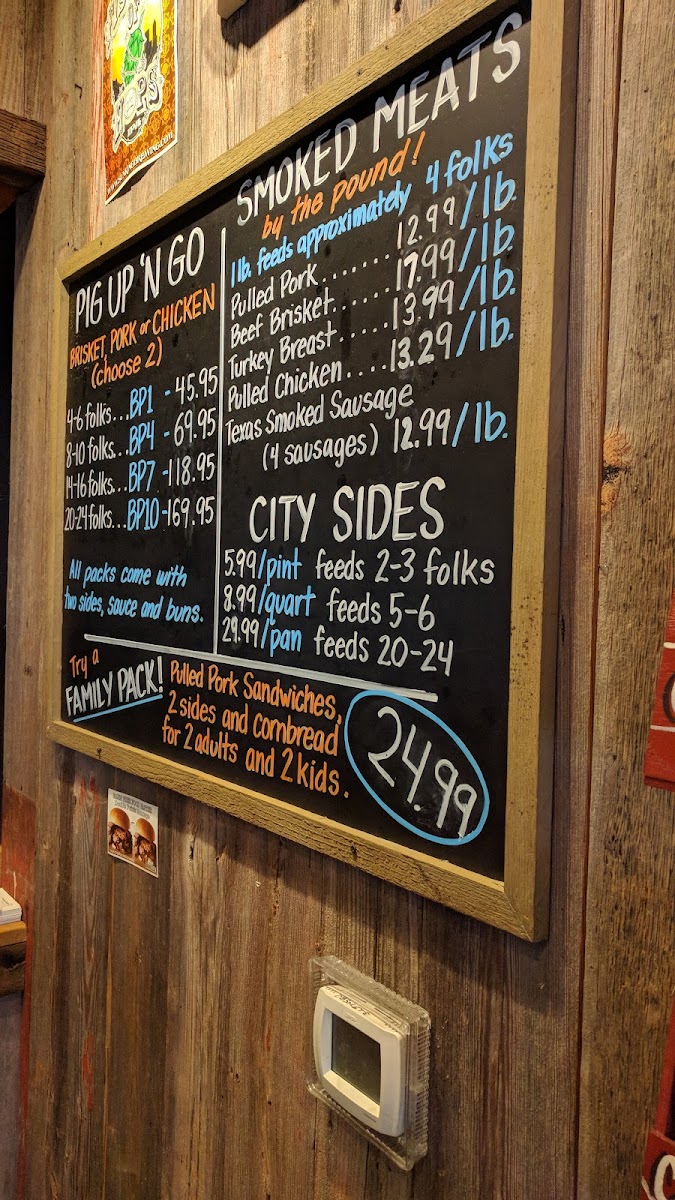 PIG UP 'N GO
BRISKET, PORK or CHICKEN
(choose 2)
4-6 folks...BP1 - 45.95
8-10 folks...BP4 - 69.95
14-16 folks...BP7 - 118.95
20-24 folks...BP10 - 169.95
All packs come with
two sides, sauce and buns.
SMOKED MEATS
by the pound!
1 lb. feeds approximately 4 folks
Pulled Pork....... 12.99/lb.
Beef Brisket...... 17.99/lb.
Turkey Breast..... 13.99/lb.
Pulled Chicken.... 13.29/lb.
Texas Smoked Sausage
(4 sausages) 12.99/lb.
CITY SIDES
5.99/pint feeds 2-3 folks
8.99/quart feeds 5-6
29.99/pan feeds 20-24
Try a
FAMILY PACK!
Pulled Pork Sandwiches,
2 sides and cornbread
for 2 adults and 2 kids.
24.99